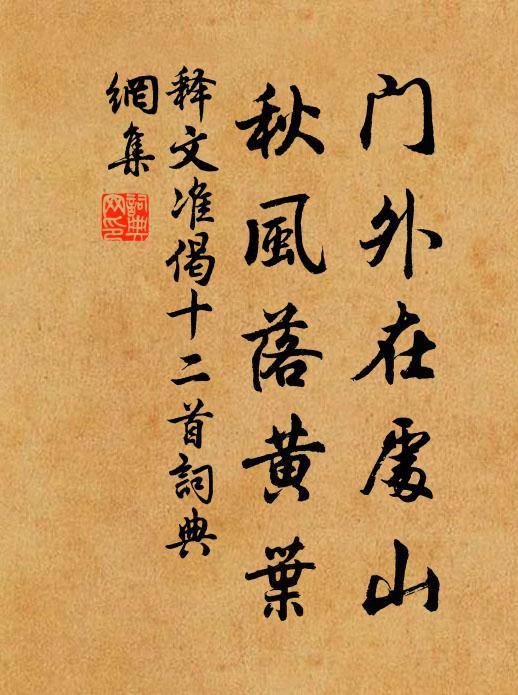 门外在處山
秋風落黄葉
释文准偈十二首詞典
網集
詞典
网印